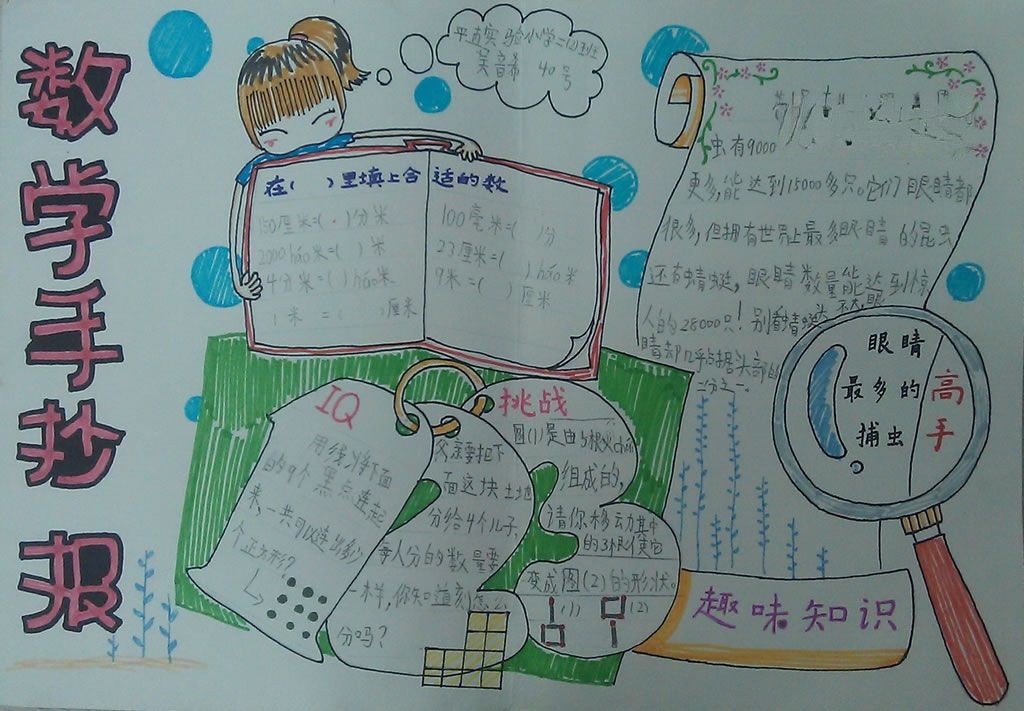 数学手抄报
平直实验小学二(2)班
吴音希 40号
在( )里填上合适的数
150厘米=( )分米
2000háo米=( )米
4分米=( )háo米
1米 =( )厘米
100毫米=( )分
23厘米=( )háo米
9米=( )厘米
虫有9000
更多,能达到15000多只。它们眼睛都
很多,但拥有世界上最多眼睛的昆虫
还有蜻蜓,眼睛数量能达到惊
人的28000只!别看蜻蜓大眼
睛却几乎占据头部的
二分之一。
眼睛
最多的
捕虫
高手
趣味知识
IQ
用线将下面
的9个黑点连起
来,一共可以连出多少
个正方形?
父亲要把下
面这块土地
分给4个儿子,
每人分的数量要
一样,你知道刻怎么
分吗?
挑战
图(1)是由5根火chái
组成的,
请你移动其中
的3根使它
变成图(2)的形状。
(1) (2)